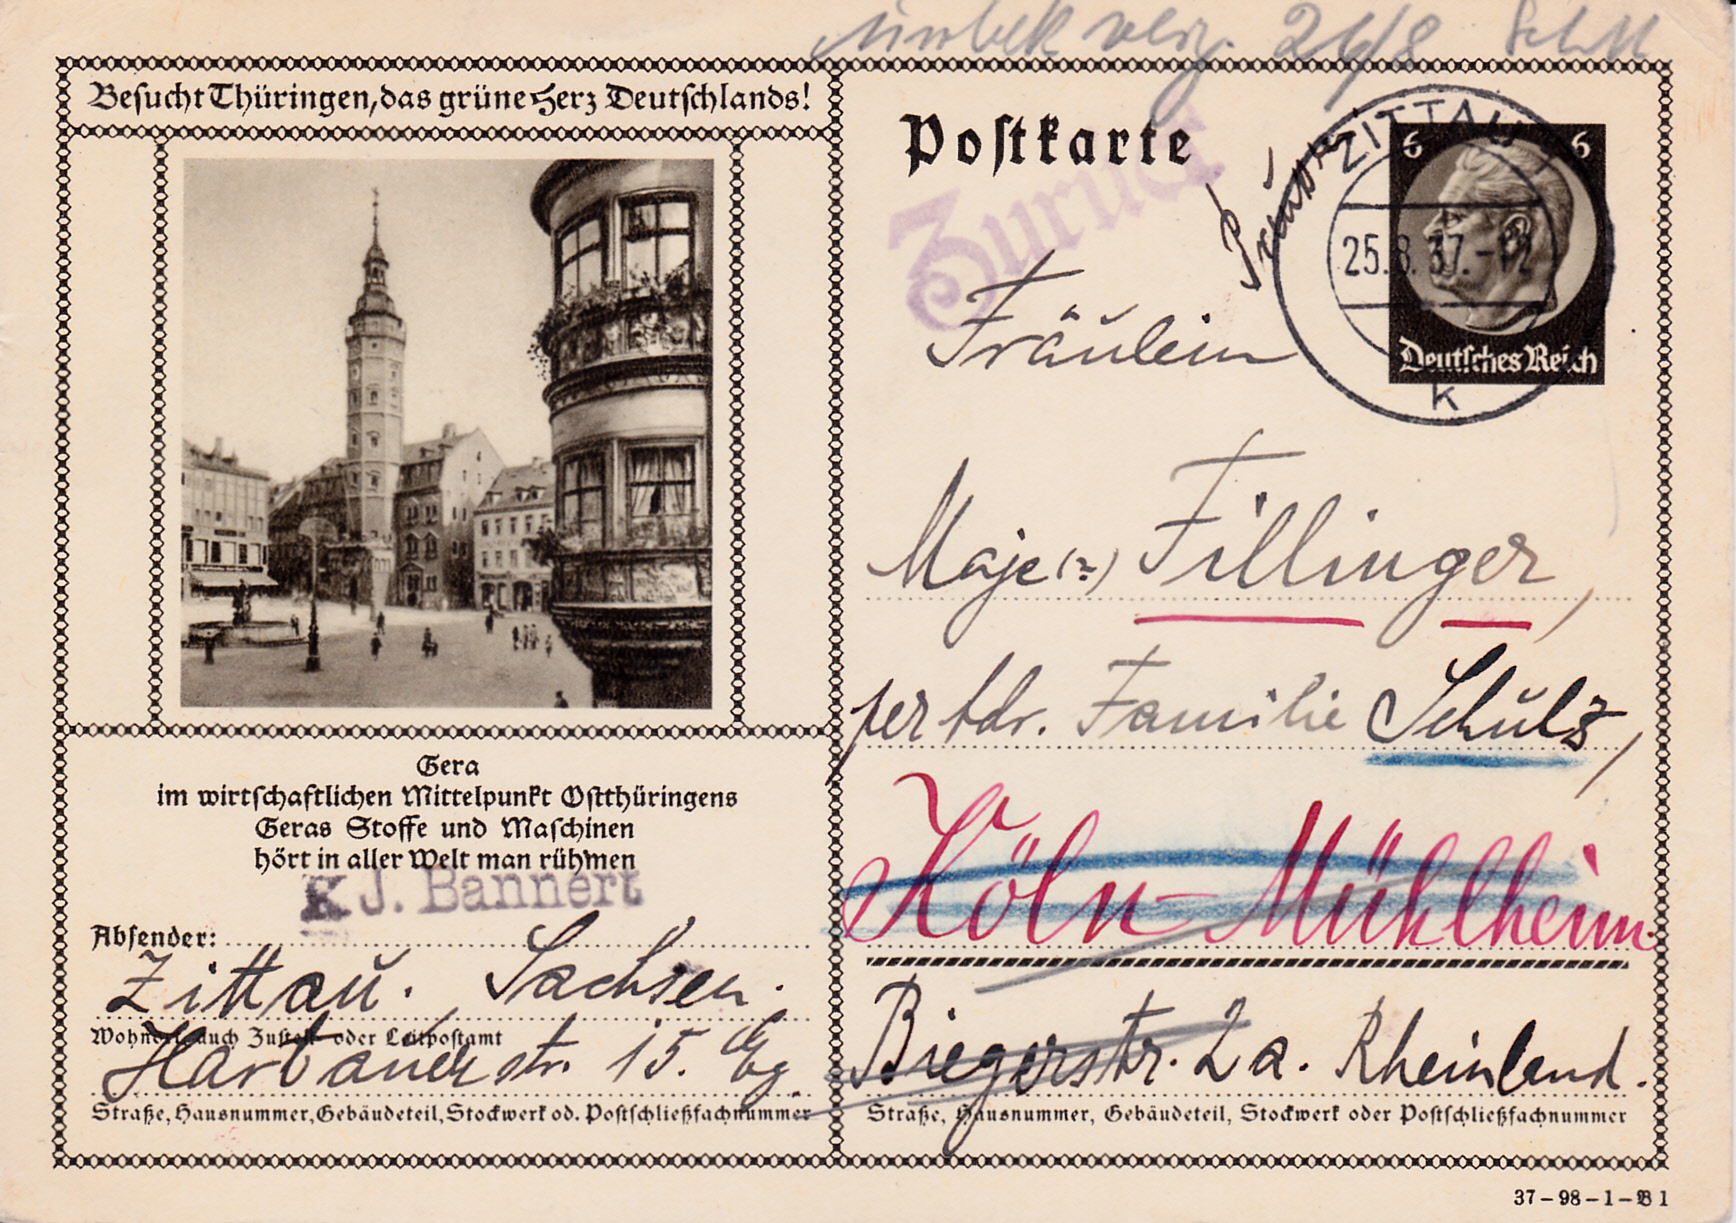 unbek verz. 26/8 Schu
Besucht Thüringen, das grüne Herz Deutschlands!
Postkarte
Zurück
ZITTAU 1
25.8.37.-12
k
6 6
Deutsches Reich
Fräulein
Maje (?) Fillinger,
per Adr. Familie Schulz,
Köln-Mühlheim.
Biegerstr. 2a. Rheinland.
Straße, Hausnummer, Gebäudeteil, Stockwerk oder Postschließfachnummer
Gera
im wirtschaftlichen Mittelpunkt Ostthüringens
Geras Stoffe und Maschinen
hört in aller Welt man rühmen
K J. Bannert
Absender:
Zittau. Sachsen.
Wohnort, auch Zustell- oder Leitpostamt
str. 15. Eg.
Straße, Hausnummer, Gebäudeteil, Stockwerk od. Postschließfachnummer
37-98-1-B1